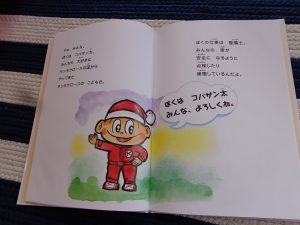 やぁ みんな。
ぼくは コバサン太。
みんなも 大好きな
サンタクロースの国から
やってきた
サンタクロースの こどもさ。
ぼくの仕事は 整備士。
みんなの 車が
安全に なるように
点検したり
修理しているんだよ。
ぼくは コバサン太
みんな、よろしくね。